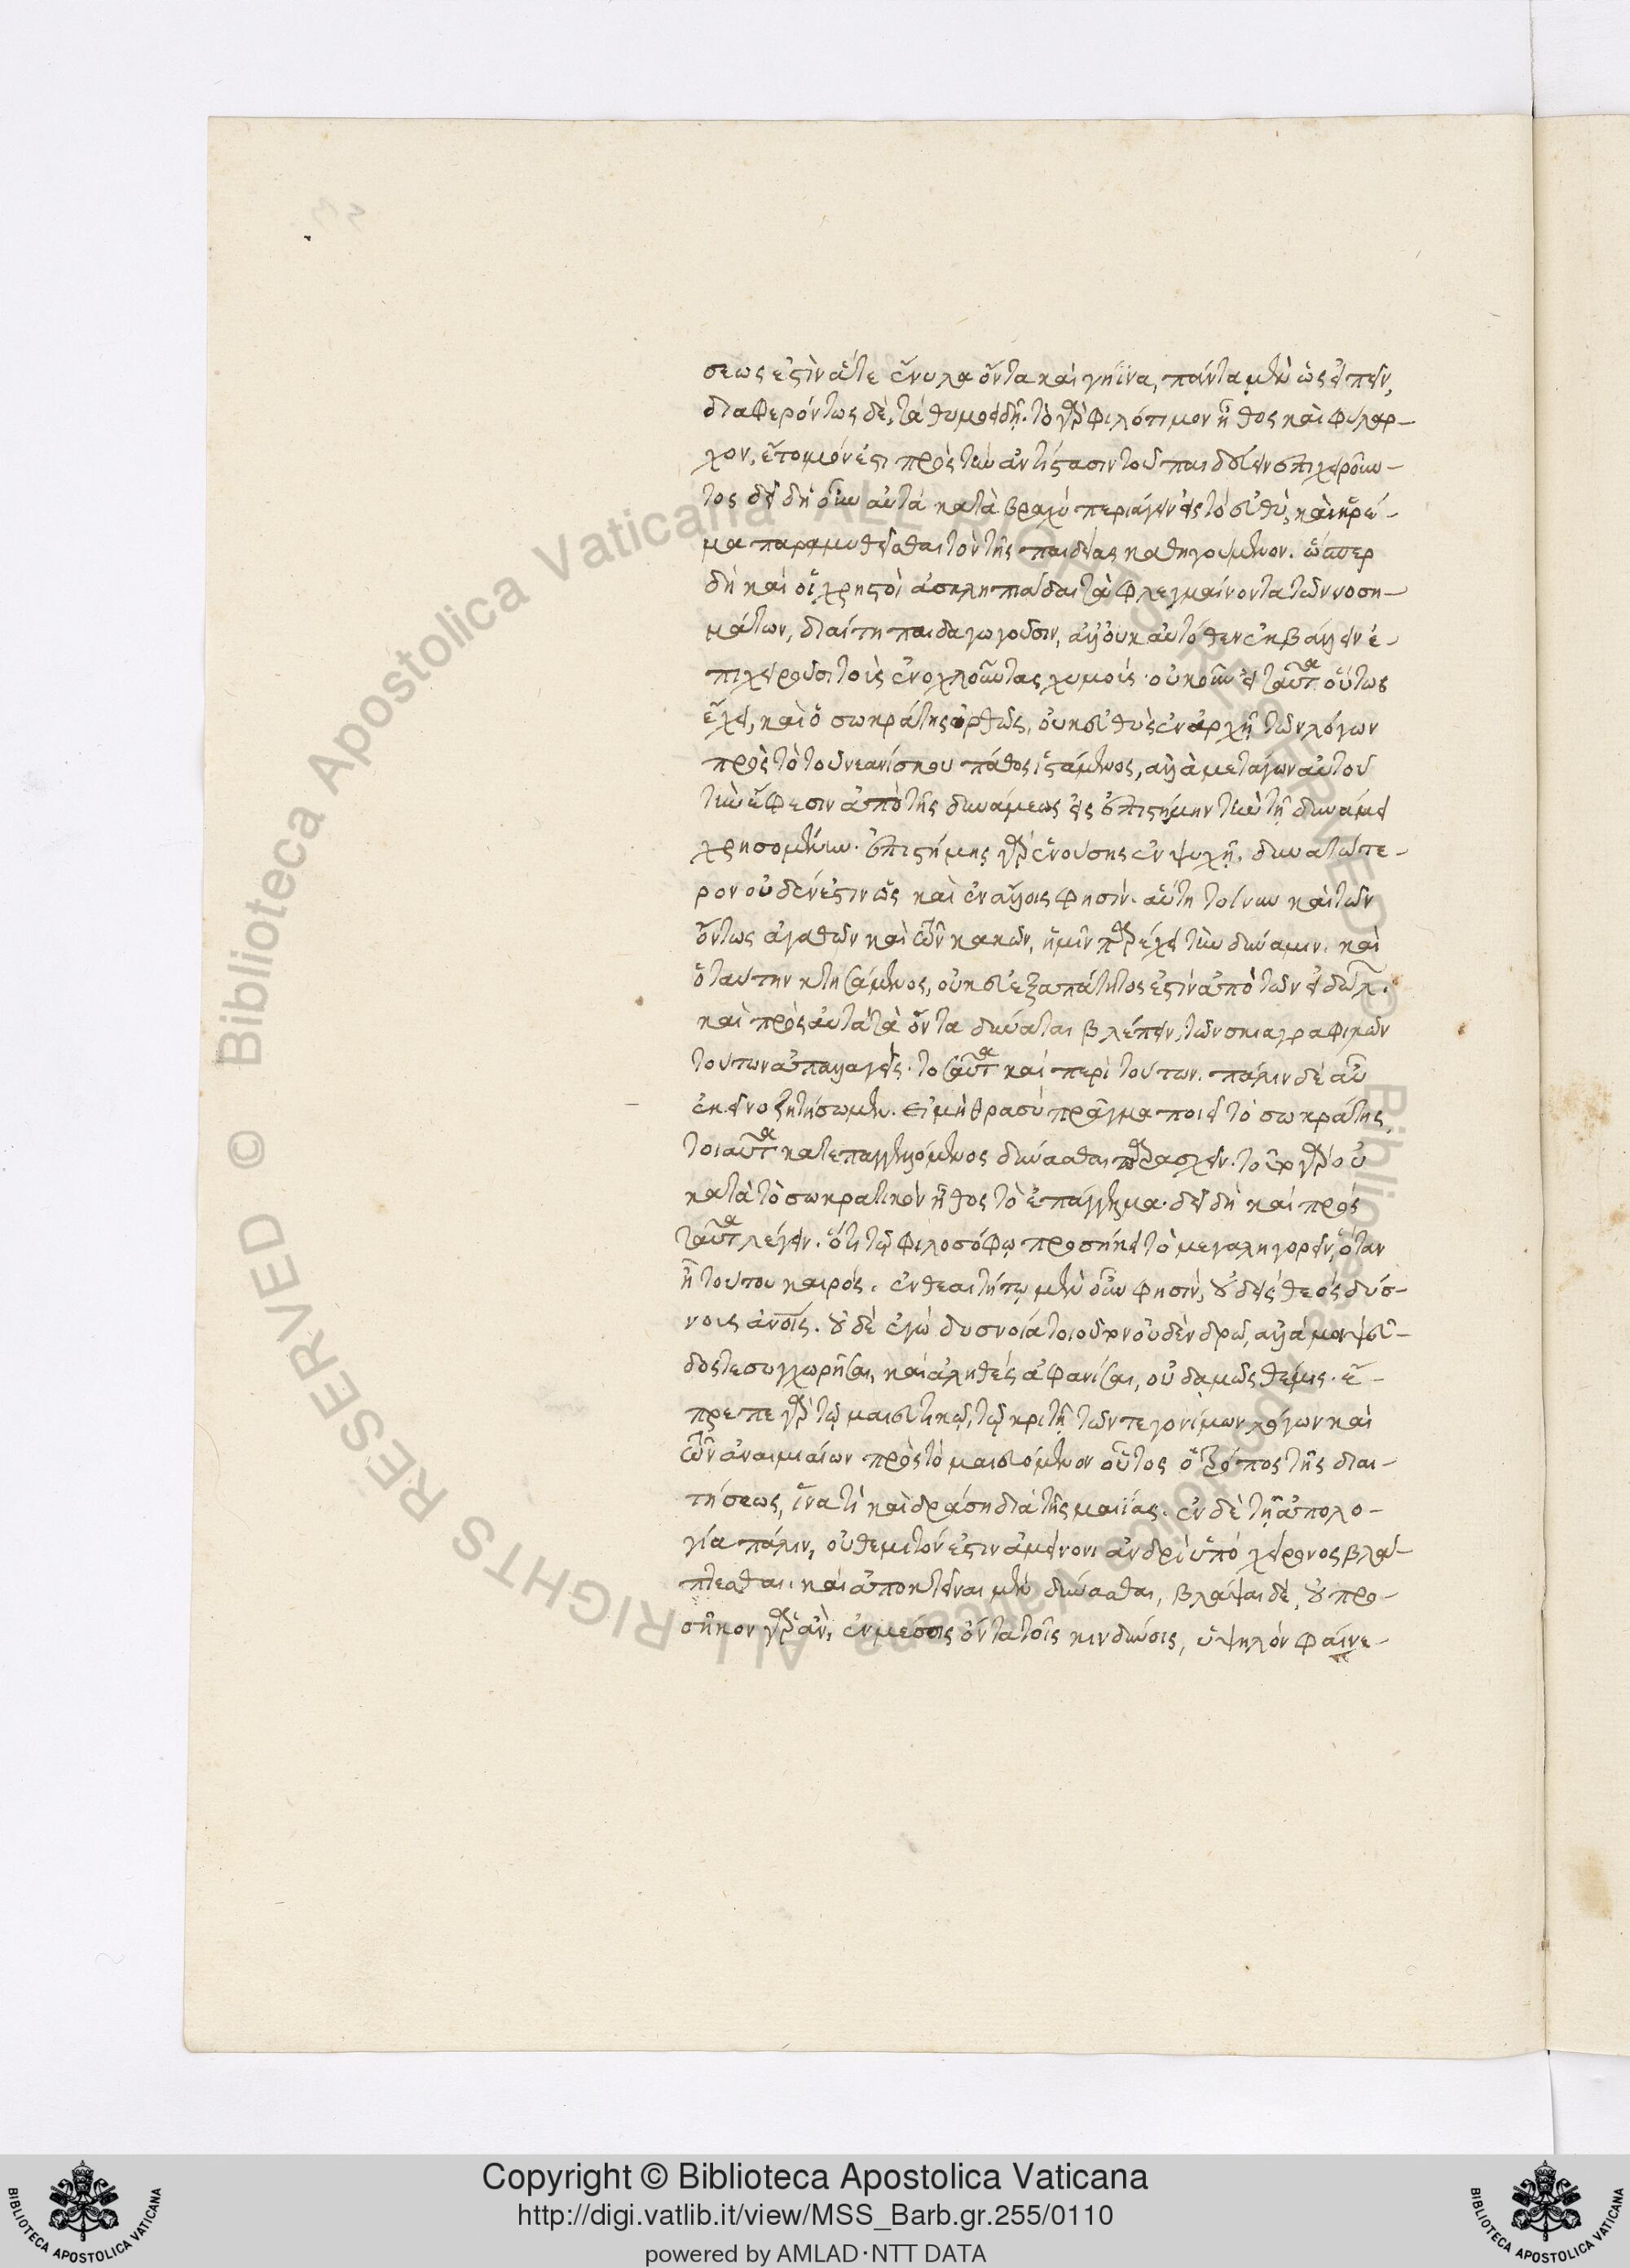 σεως ἐστὶν ἅτε ἔνυλα ὄντα καὶ γήϊνα, πάντα μὲν ὡς εἰπεῖν,
διαφερόντως δὲ, τὰ θυμοειδῆ. τὸ γὰρ φιλότιμον ἦθος καὶ φίλαρ-
χον, ἕτοιμόν ἐστι πρὸς τὴν ἀντίστασιν τοῦ παιδεύειν ἐπιχειροῦν-
τος δεῖ δὴ οὖν αὐτὰ κατὰ βραχὺ περιάγειν εἰς τὸ εὐθὺ, καὶ ἠρέ-
μα παραμυθεῖσθαι τὸν τῆς παιδείας καθηγούμενον. ὥσπερ
δὴ καὶ οἱ χρηστοὶ ἀσκληπιάδαι τὰ φλεγμαίνοντα τῶν νοση-
μάτων, διαίτη παιδαγωγοῦσιν, ἀλλ' οὐκ αὐτόθεν ἐκβάλλειν ἐ-
πιχειροῦσι τοὺς ἐνοχλοῦντας χυμούς. οὐκοῦν εἰ ταῦτα οὕτως
ἔχει, καὶ ὁ σωκράτης ὀρθῶς, οὐκ εὐθὺς ἐν ἀρχῇ τῶν λόγων
πρὸς τὸ τοῦ νεανίσκου πάθος ἱστάμενος, ἀλλὰ μετάγων αὐτοῦ
τὴν ἔφεσιν ἀπὸ τῆς δυνάμεως εἰς ἐπιστήμην τὴν τῇ δυνάμει
χρησομένην. ἐπιστήμης γὰρ ἐνούσης ἐν ψυχῇ, δυνατώτε-
ρον οὐδέν ἐστιν ὡς καὶ ἐν ἄλλοις φησίν. αὕτη τοίνυν καὶ τῶν
ὄντως ἀγαθῶν καὶ τῶν κακῶν, ἡμῖν παρέχει τὴν δύναμιν. καὶ
ὁ ταύτην κτησάμενος, οὐκ εὐεξαπάτητος ἐστὶν ἀπὸ τῶν εἰδώλ.
καὶ πρὸς αὐτὰ τὰ ὄντα δύναται βλέπειν, τῶν σκιαγραφικῶν
τούτων ἀπαλλαγείς. τοσαῦτα καὶ περὶ τούτων. πάλιν δὲ αὖ
ἐκεῖνο ζητήσωμεν. εἰ μὴ θρασὺ πρᾶγμα ποιεῖ τὸ σωκράτης,
τοιαῦτα κατεπαγγελλόμενος δύνασθαι παρασχεῖν. τὸ γὰρ οὐ
κατὰ τὸ σωκρατικὸν ἦθος τὸ ἐπάγγελμα. δεῖ δὴ καὶ πρὸς
ταῦτα λέγειν. ὅτι τῷ φιλοσόφῳ προσήκει τὸ μεγαληγορεῖν, ὅταν
ἦ τούτου καιρός. ἐν θεαιτήτῳ μὲν οὖν φησὶν, οὐδεὶς θεὸς δύσ-
νους ἀνοις. οὐδὲ ἐγὼ δυσνοίᾳ τοιοῦτον οὐδὲν δρῶ, ἀλλά μοι ψεῦ-
δος τε συγχωρῆσαι, καὶ ἀληθὲς ἀφανίσαι, οὐδαμῶς θέμις. ἔ-
πρεπε γὰρ τῷ μαιευτικῷ, τῷ κριτῇ τῶν τε γονίμων λόγων καὶ
τῶν ἀνεμιαίων πρὸς τὸ μαιευόμενον οὗτος ὁ τρόπος τῆς διαι-
τήσεως, ἵνα τὶ καὶ δράσῃ διὰ τῆς μαιείας. ἐν δὲ τῇ ἀπολο-
γία πάλιν, οὐ θεμιτόν ἐστιν ἀμείνονι ἀνδρὶ ὑπὸ χείρονος βλά-
πτεσθαι. καὶ ἀποκτεῖναι μὲν δύνασθαι, βλάψαι δὲ, οὐ προ-
σῆκον γὰρ ἂν, ἐν μέσοις ὄντα τοῖς κινδύνοις, ὑψηλὸν φαίνε-
Copyright © Biblioteca Apostolica Vaticana
http://digi.vatlib.it/view/MSS_Barb.gr.255/0110
powered by AMLAD·NTT DATA